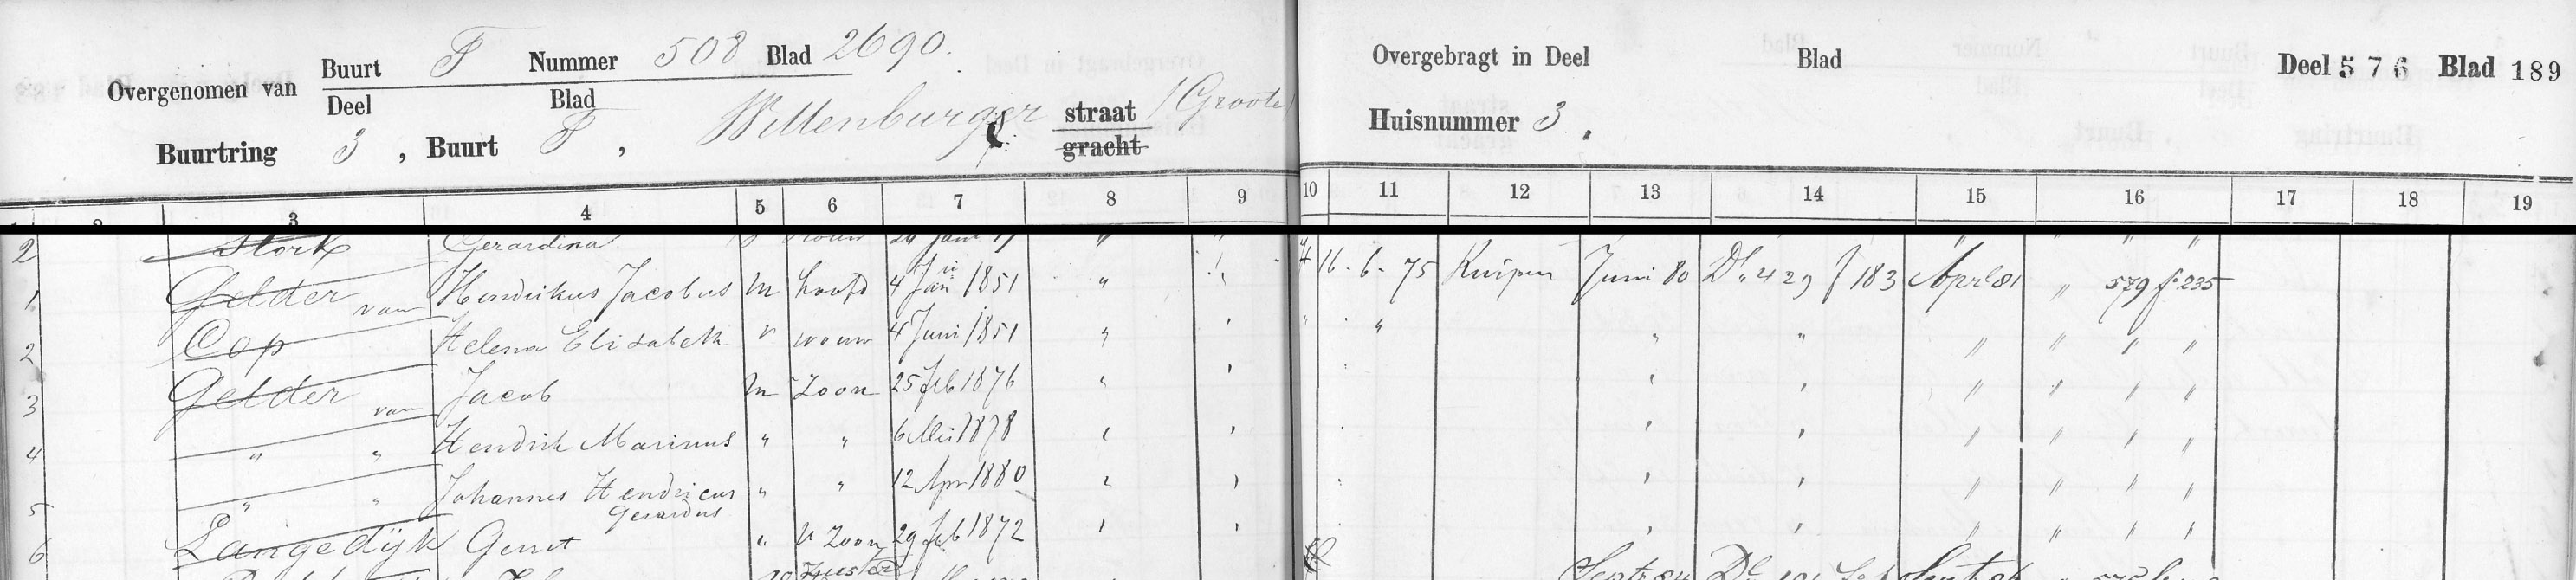 Overgenomen van Buurt F Nummer 508 Blad 2690.
Deel Blad
Buurtring 3, Buurt F, Wittenburger straat (Groote)
gracht
Overgebragt in Deel Blad Deel 576 Blad 189
Huisnummer 3.
3 4 5 6 7 8 9 10 11 12 13 14 15 16 17 18 19
2 Stork Gerardina " "
1 Gelder van Hendrikus Jacobus M hoofd 4 Juni 1851 " 16-6-75 Kuiper Juni 80 Dl. 429 f 183 Apr 81 " 579 f 235
2 Cop Helena Elisabeth v vrouw 4 Juni 1851 " " " " " " " "
3 Gelder van Jacob M Zoon 25 feb 1876 " " " " " " " "
4 " " Hendrik Marinus " " 6 Mei 1878 " " " " " " " "
5 " " Johannes Hendricus Gerardus " " 12 Apr 1880 " " " " " " " "
6 Langedijk Gerrit " v Zoon 29 feb 1872 " " " " " " " "
Zuster